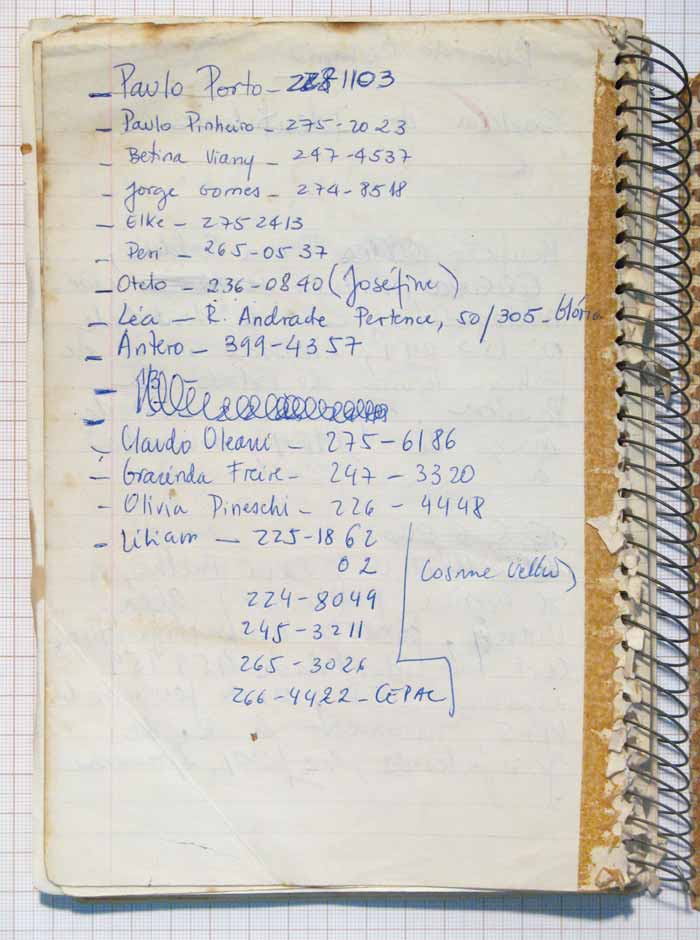 - Paulo Porto - 1103
- Paulo Pinheiro - 275-2023
- Betina Viany - 247-4537
- Jorge Gomes - 274-8518
- Elke - 275 2413
- Peri - 265-0537
- Otelo - 236-0840 (Joséfine)
- Léa - R. Andrade Pertence, 50/305 - Glória
- Antero - 399-4357
-
- Claudo Oleani - 275-6186
- Gracinda Freire - 247 - 3320
- Olivia Pineschi - 226 - 4448
- Liliam - 225-1862
02
(Cosme Velho)
224-8049
245-3211
265-3026
266-4422 - CEPAC